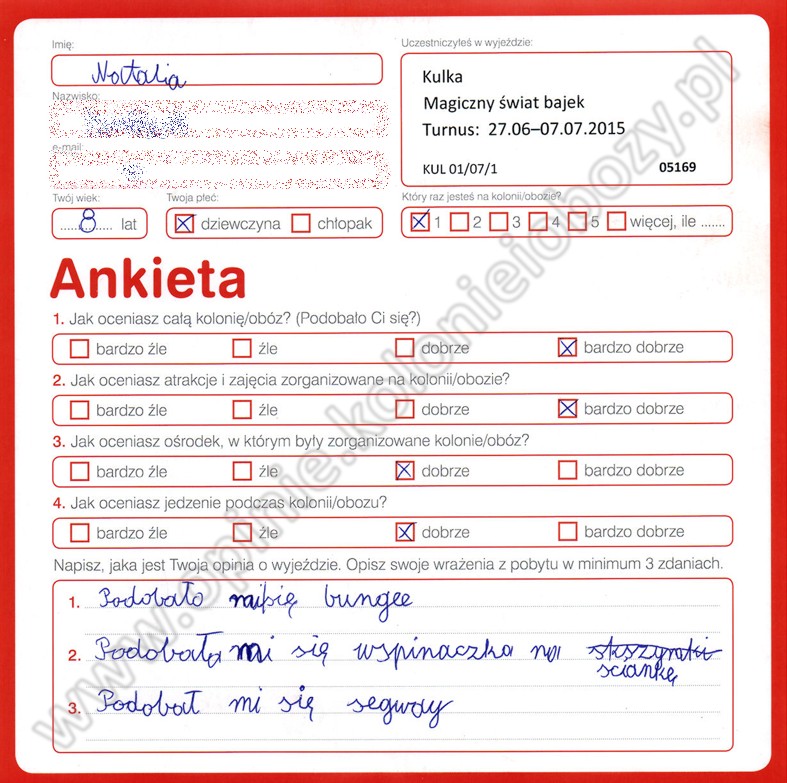 Imię:
Natalia
Nazwisko:
e-mail:
Twój wiek:
8 lat
Twoja płeć:
dziewczyna chłopak
Uczestniczyłeś w wyjeździe:
Kulka
Magiczny świat bajek
Turnus: 27.06–07.07.2015
KUL 01/07/1 05169
Który raz jesteś na kolonii/obozie?
1 2 3 4 5 więcej, ile .......
Ankieta
1. Jak oceniasz całą kolonię/obóz? (Podobało Ci się?)
bardzo źle źle dobrze bardzo dobrze
2. Jak oceniasz atrakcje i zajęcia zorganizowane na kolonii/obozie?
bardzo źle źle dobrze bardzo dobrze
3. Jak oceniasz ośrodek, w którym były zorganizowane kolonie/obóz?
bardzo źle źle dobrze bardzo dobrze
4. Jak oceniasz jedzenie podczas kolonii/obozu?
bardzo źle źle dobrze bardzo dobrze
Napisz, jaka jest Twoja opinia o wyjeździe. Opisz swoje wrażenia z pobytu w minimum 3 zdaniach.
1. Podobało mi się bungee
2. Podobała mi się wspinaczka na
sciankę
3. Podobał mi się segway
www.opinie.kolonieiobozy.pl